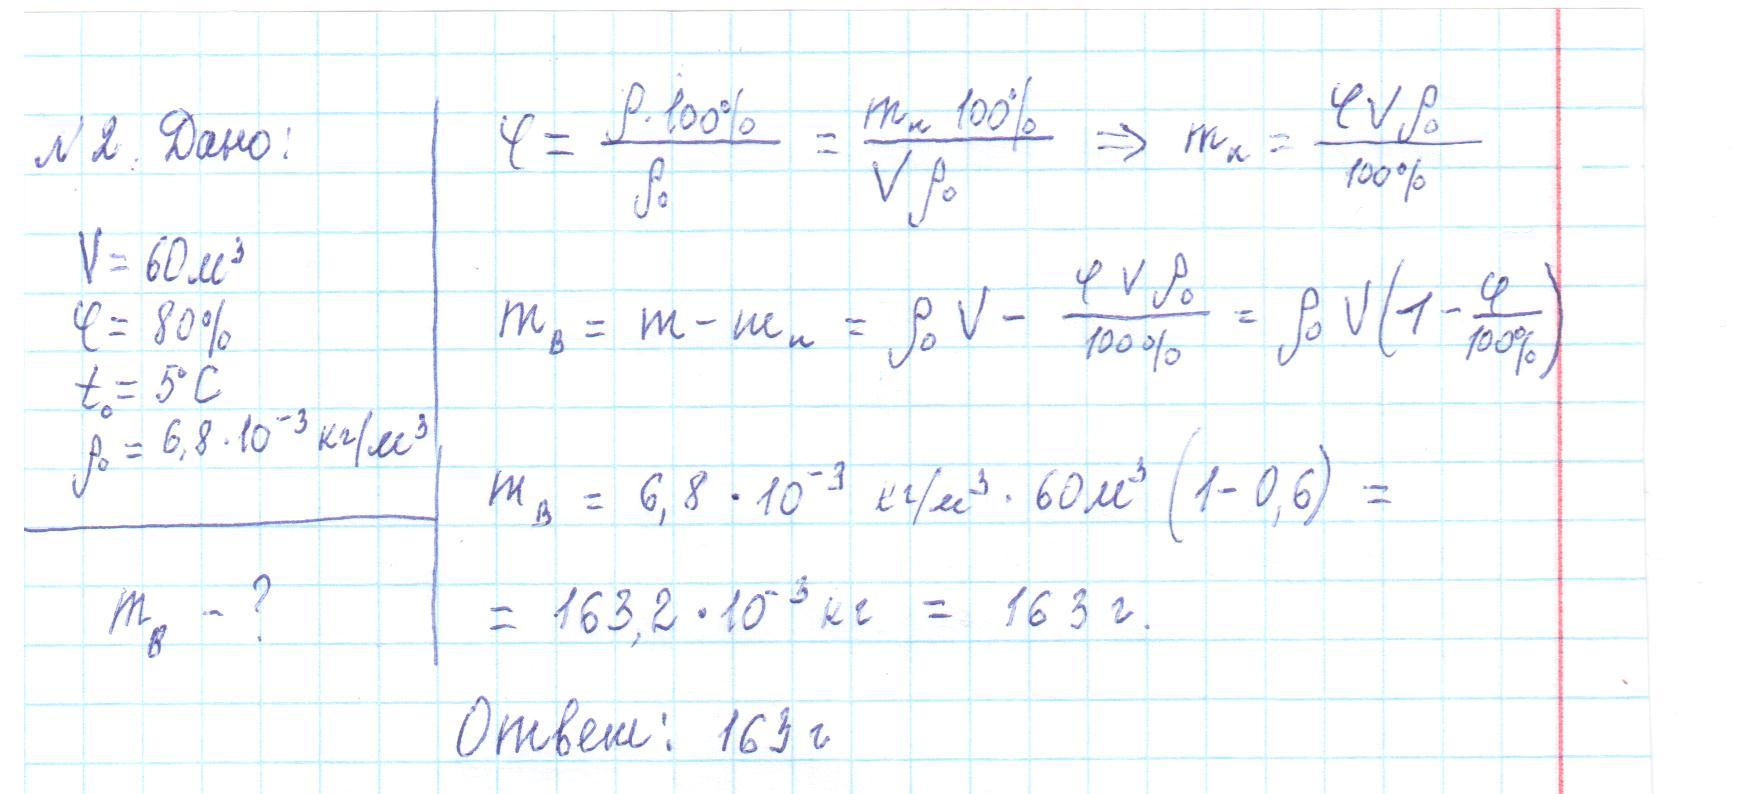 №2. Дано:
V = 60 м³
φ = 80%
t₀ = 5°C
ρ₀ = 6,8·10⁻³ кг/м³
m_в - ?
φ = ρ·100% / ρ₀ = m_п 100% / Vρ₀ ⇒ m_п = φVρ₀ / 100%
m_в = m - m_п = ρ₀V - φVρ₀ / 100% = ρ₀V(1 - φ / 100%)
m_в = 6,8·10⁻³ кг/м³·60м³ (1 - 0,6) =
= 163,2·10⁻³ кг = 163 г.
Ответ: 163 г